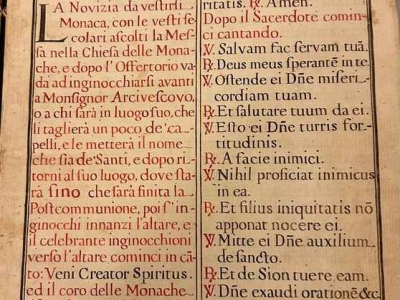 LA Novizia da vestirsi
Monaca, con le vesti se
colari ascolti la Mes
sa nella Chiesa delle Mona
che, e dopo l'Offertorio va
da ad inginocchiarsi avanti
a Monsignor Arcivescovo,
o a chi sarà in luogo suo, che
li taglierà un poco de' ca
pelli, e le metterà il nome
che sia de' Santi, e dopo ri
torni al suo luogo, dove sta
rà sino che sarà finita la
Postcommunione, poi s'in
ginocchi innanzi l'altare, e
il celebrante inginocchioni
verso l'altare cominci in cā
to: Veni Creator Spiritus.
ed il coro delle Monache
ritatis. ℟. Amen.
Dopo il Sacerdote comin
ci cantando.
℣. Salvam fac servam tuā.
℟. Deus meus sperantē in te.
℣. Ostende ei Dn̄e miseri
cordiam tuam.
℟. Et salutare tuum da ei.
℣. Esto ei Dn̄e turris for
titudinis.
℟. A facie inimici.
℣. Nihil proficiat inimicus
in ea.
℟. Et filius iniquitatis nō
apponat nocere ei.
℣. Mitte ei Dn̄e auxilium
de sancto.
℟. Et de Sion tuere eam.
℣. Dn̄e exaudi orationē &c.